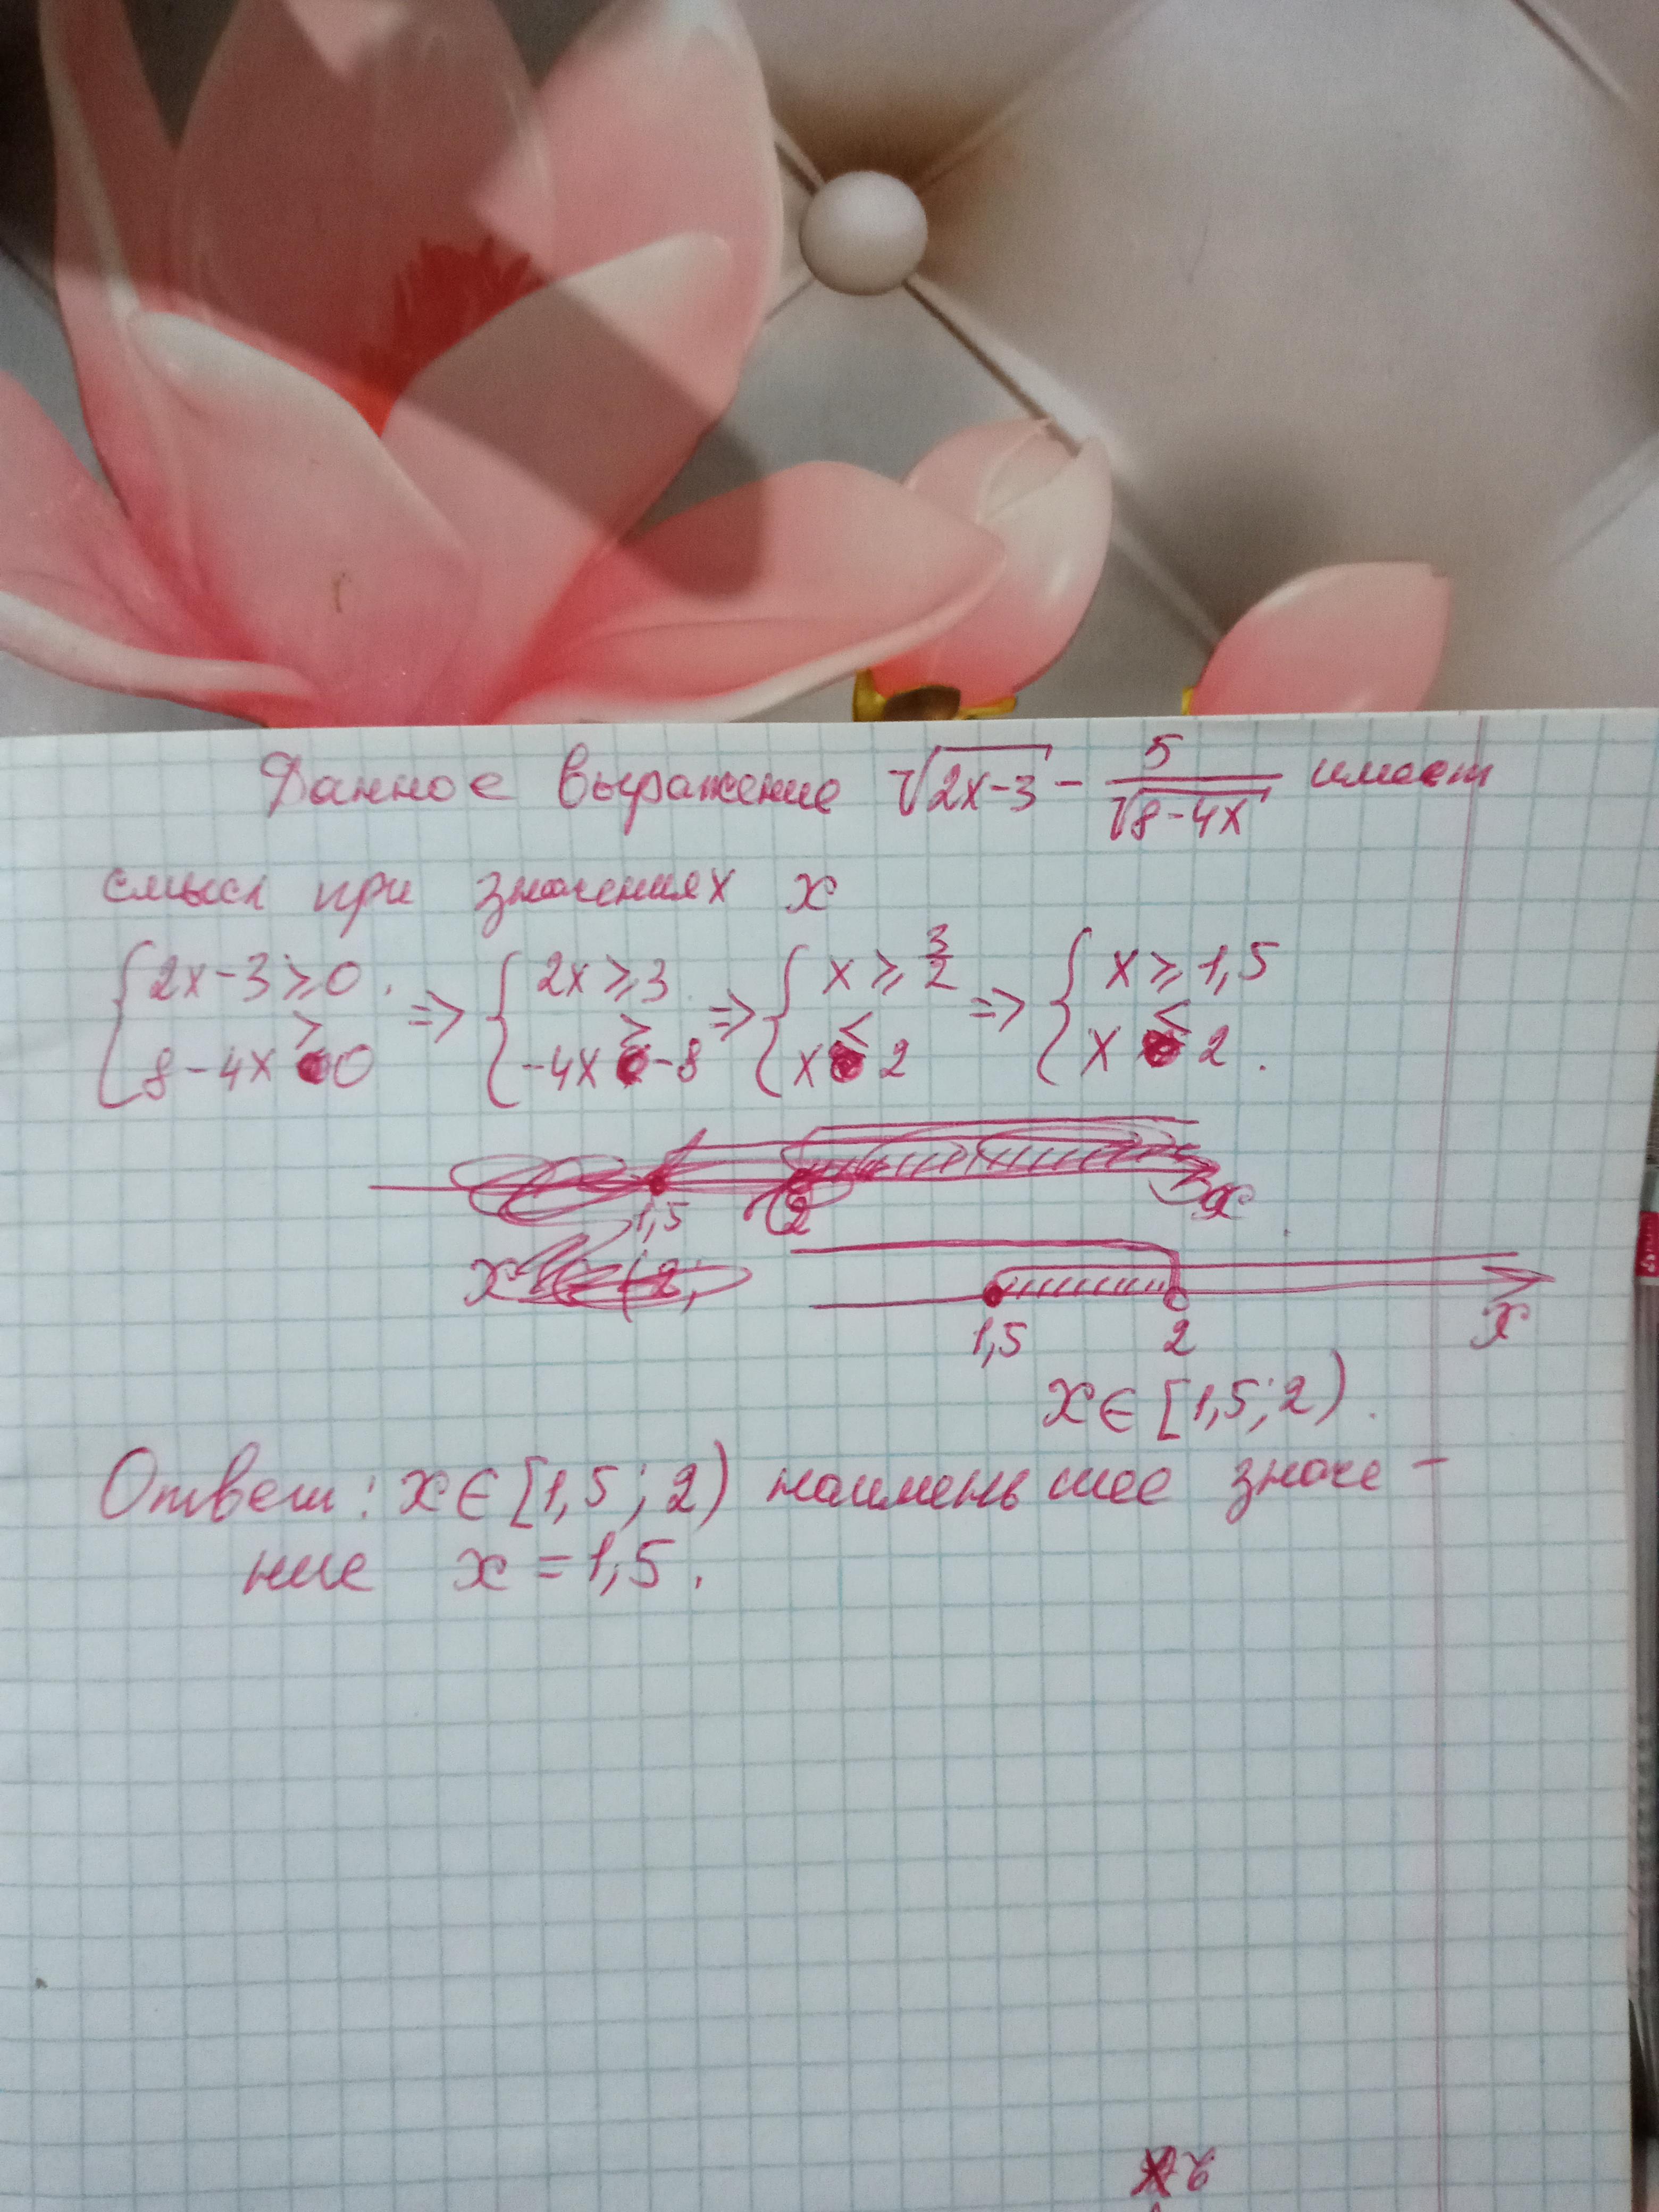 Данное выражение √(2x-3) - 5/√(8-4x) имеет
смысл при значениях x
{2x-3≥0, 8-4x>0 => {2x≥3, -4x>-8 => {x≥3/2, x<2 => {x≥1,5, x<2.
1,5 2 x
x (2;
1,5 2 x
x∈[1,5;2).
Ответ: x∈[1,5;2) наименьшее значе-
ние x=1,5.